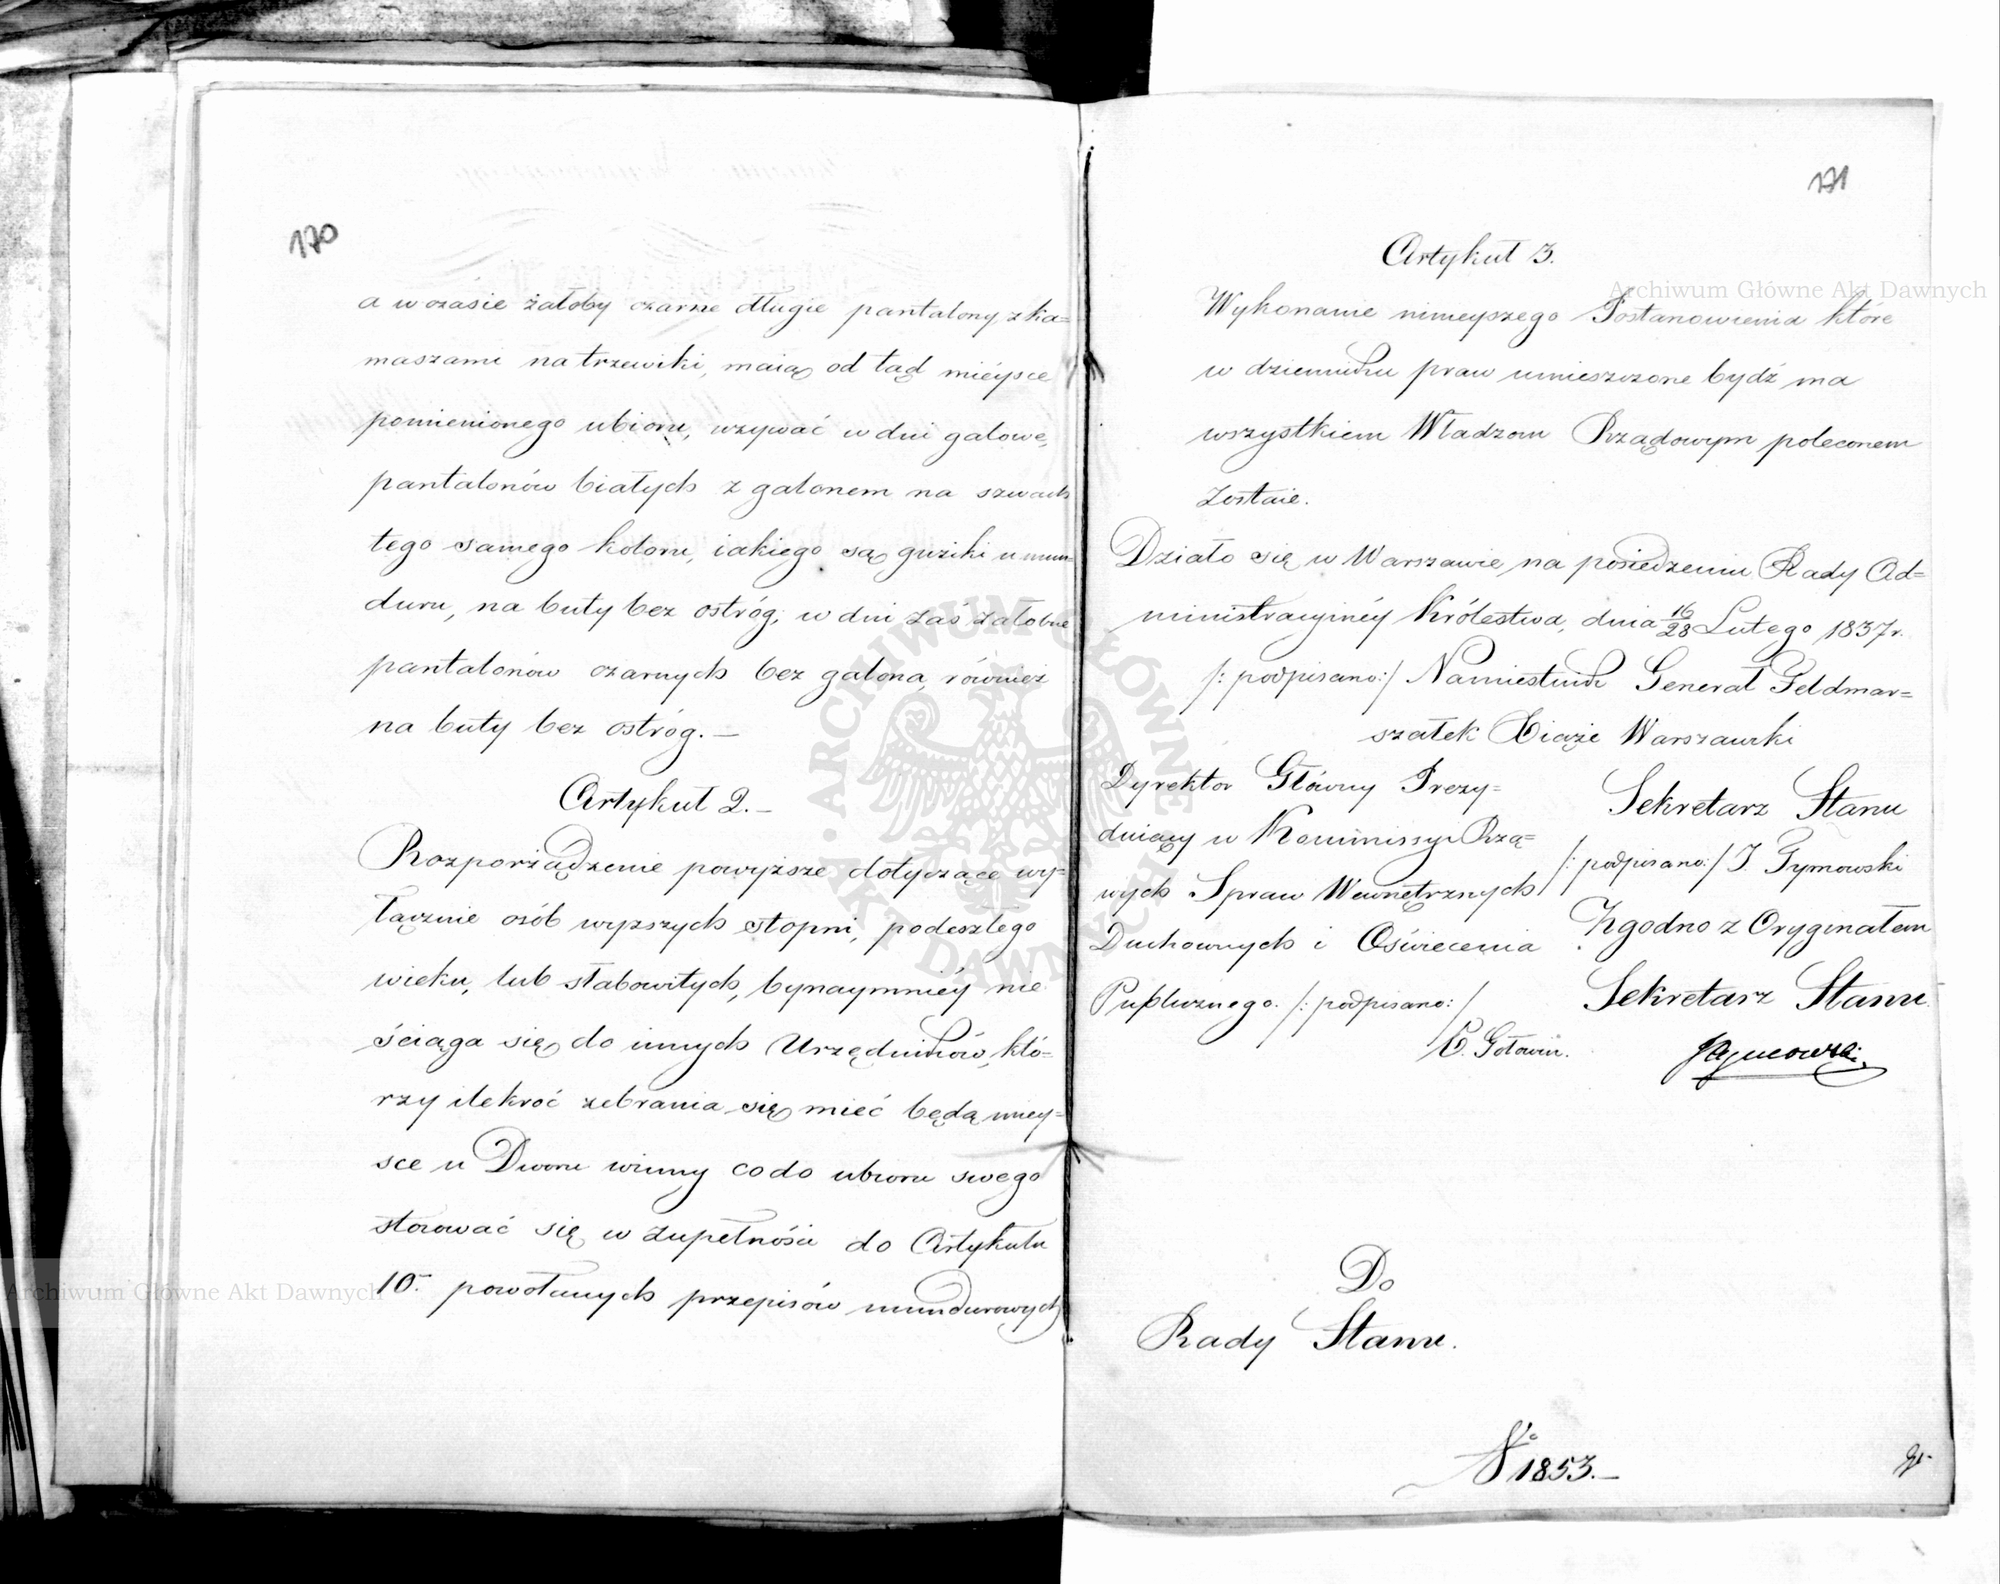 170
a w czasie żałoby czarne długie pantalony z ka=
maszami na trzewiki, maią od tąd miéysce
pomienionego ubioru, używać w dni galowe,
pantalonów białych z galonem na szwach
tego samego koloru, iakiego są guziki u mun=
duru, na buty bez ostróg; w dni zaś żałobne
pantalonów czarnych bez galona, również
na buty bez ostróg. —
Artykuł 2. —
Rozporządzenie powyższe dotyczące wy=
łącznie osób wyższych stopni, podeszłego
wieku, lub słabowitych, bynaymniéy nie
ściąga się do innych Urzędników, któ=
rzy ilekroć zebrania się mieć będą miey=
sce u Dworu winny co do ubioru swego
stosować się w zupełności do Artykułu
10. powołanych przepisów mundurowych
171
Artykuł 3.
Wykonanie ninieyszego Postanowienia które
w dzienniku praw umieszczone bydź ma
wszystkiem Władzom Rządowym poleconem
zostaie.
Działo się w Warszawie na posiedzeniu Rady Ad=
ministracyinéy Królestwa, dnia 16/28 Lutego 1837 r.
/: podpisano:/ Namiestnik Generał Feldmar=
szałek Xiąże Warszawski
Dyrektor Główny Prezy=
duiący w Kommissyi Rzą=
wych Spraw Wewnętrznych
Duchownych i Oświecenia
Publicznego. /: podpisano: /
E. Gołowin.
Sekretarz Stanu
/: podpisano:/ J. Tymowski
Zgodno z Oryginałem
Sekretarz Stanu
JTymowski
Do
Rady Stanu.
No 1853. —
Archiwum Główne Akt Dawnych
Archiwum Główne Akt Dawnych
ARCHIWUM GŁÓWNE AKT DAWNYCH